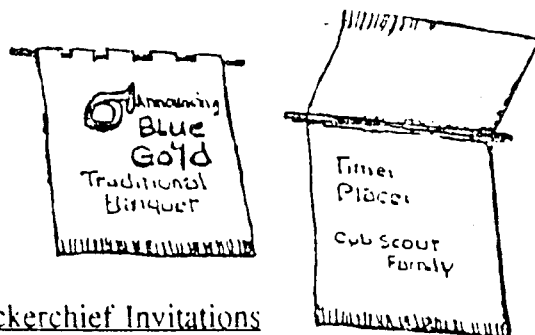 Announcing
Blue
Gold
Traditional
Banquet
Time:
Place:
Cub Scout
Family
ckerchief Invitations